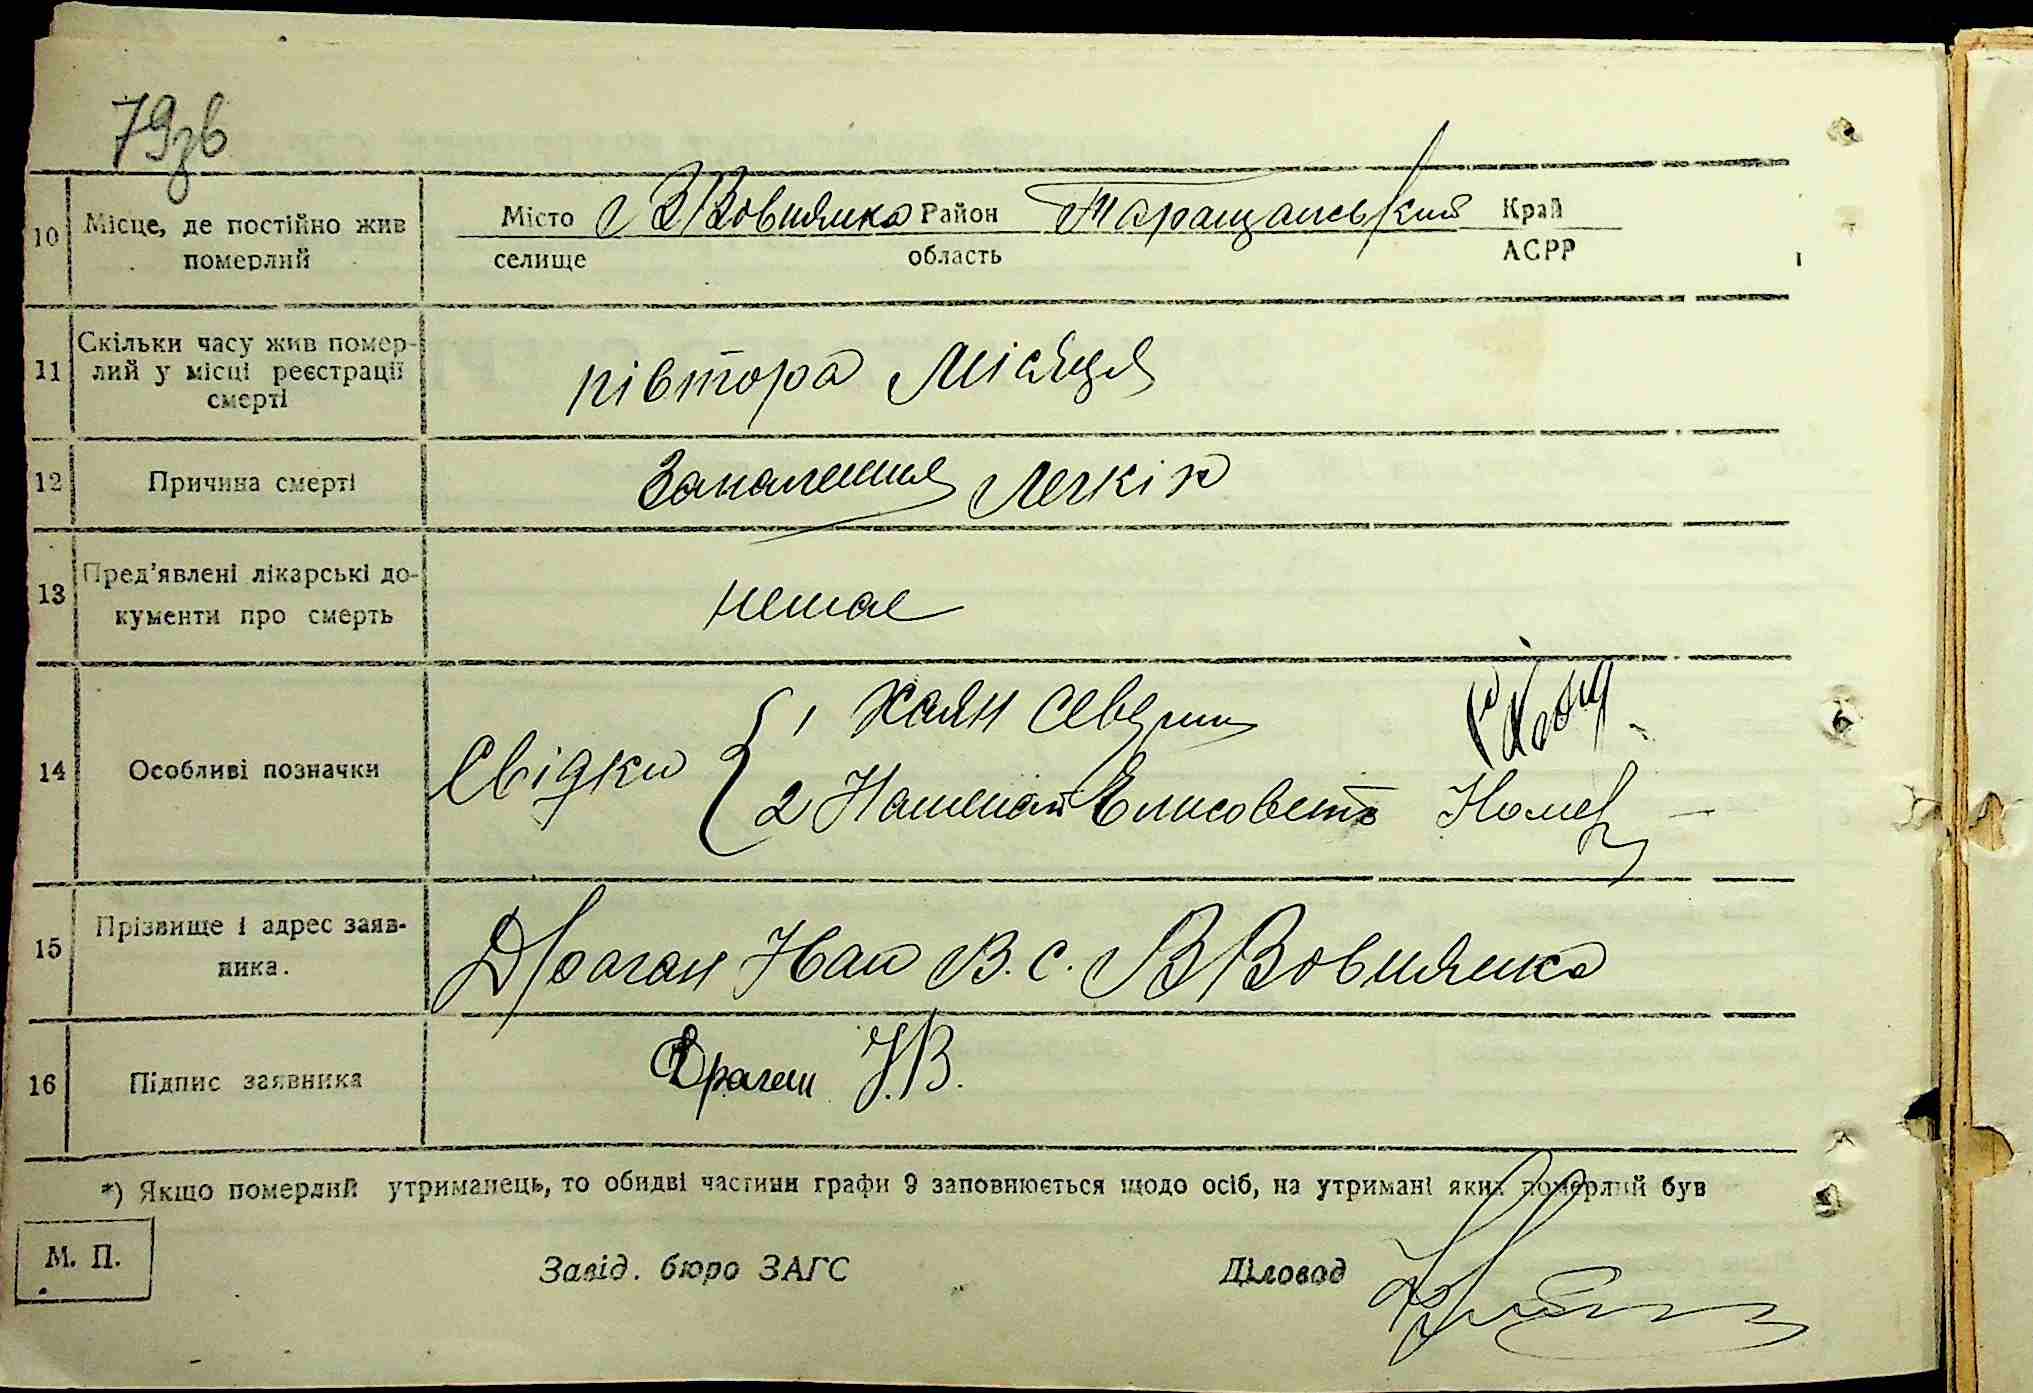 79зв
10 Місце, де постійно жив померлий
Місто В Вовнянка Район Таращанський Край
селище область АСРР
11 Скільки часу жив помер-
лий у місці реєстрації
смерті
півтора місяця
12 Причина смерті Запалення легкіх
13 Пред'явлені лікарські до-
кументи про смерть
немае
14 Особливі позначки Свідки
1 Хаян
2 Елисовета
15 Прізвище і адрес заяв-
ника.
Драган Іван В. с. В Вовнянка
16 Підпис заявника Драган І.В.
*) Якщо померлий утриманець, то обидві частини графи 9 заповнюється щодо осіб, на утримані яких померлий був
М. П. Завід. бюро ЗАГС Діловод